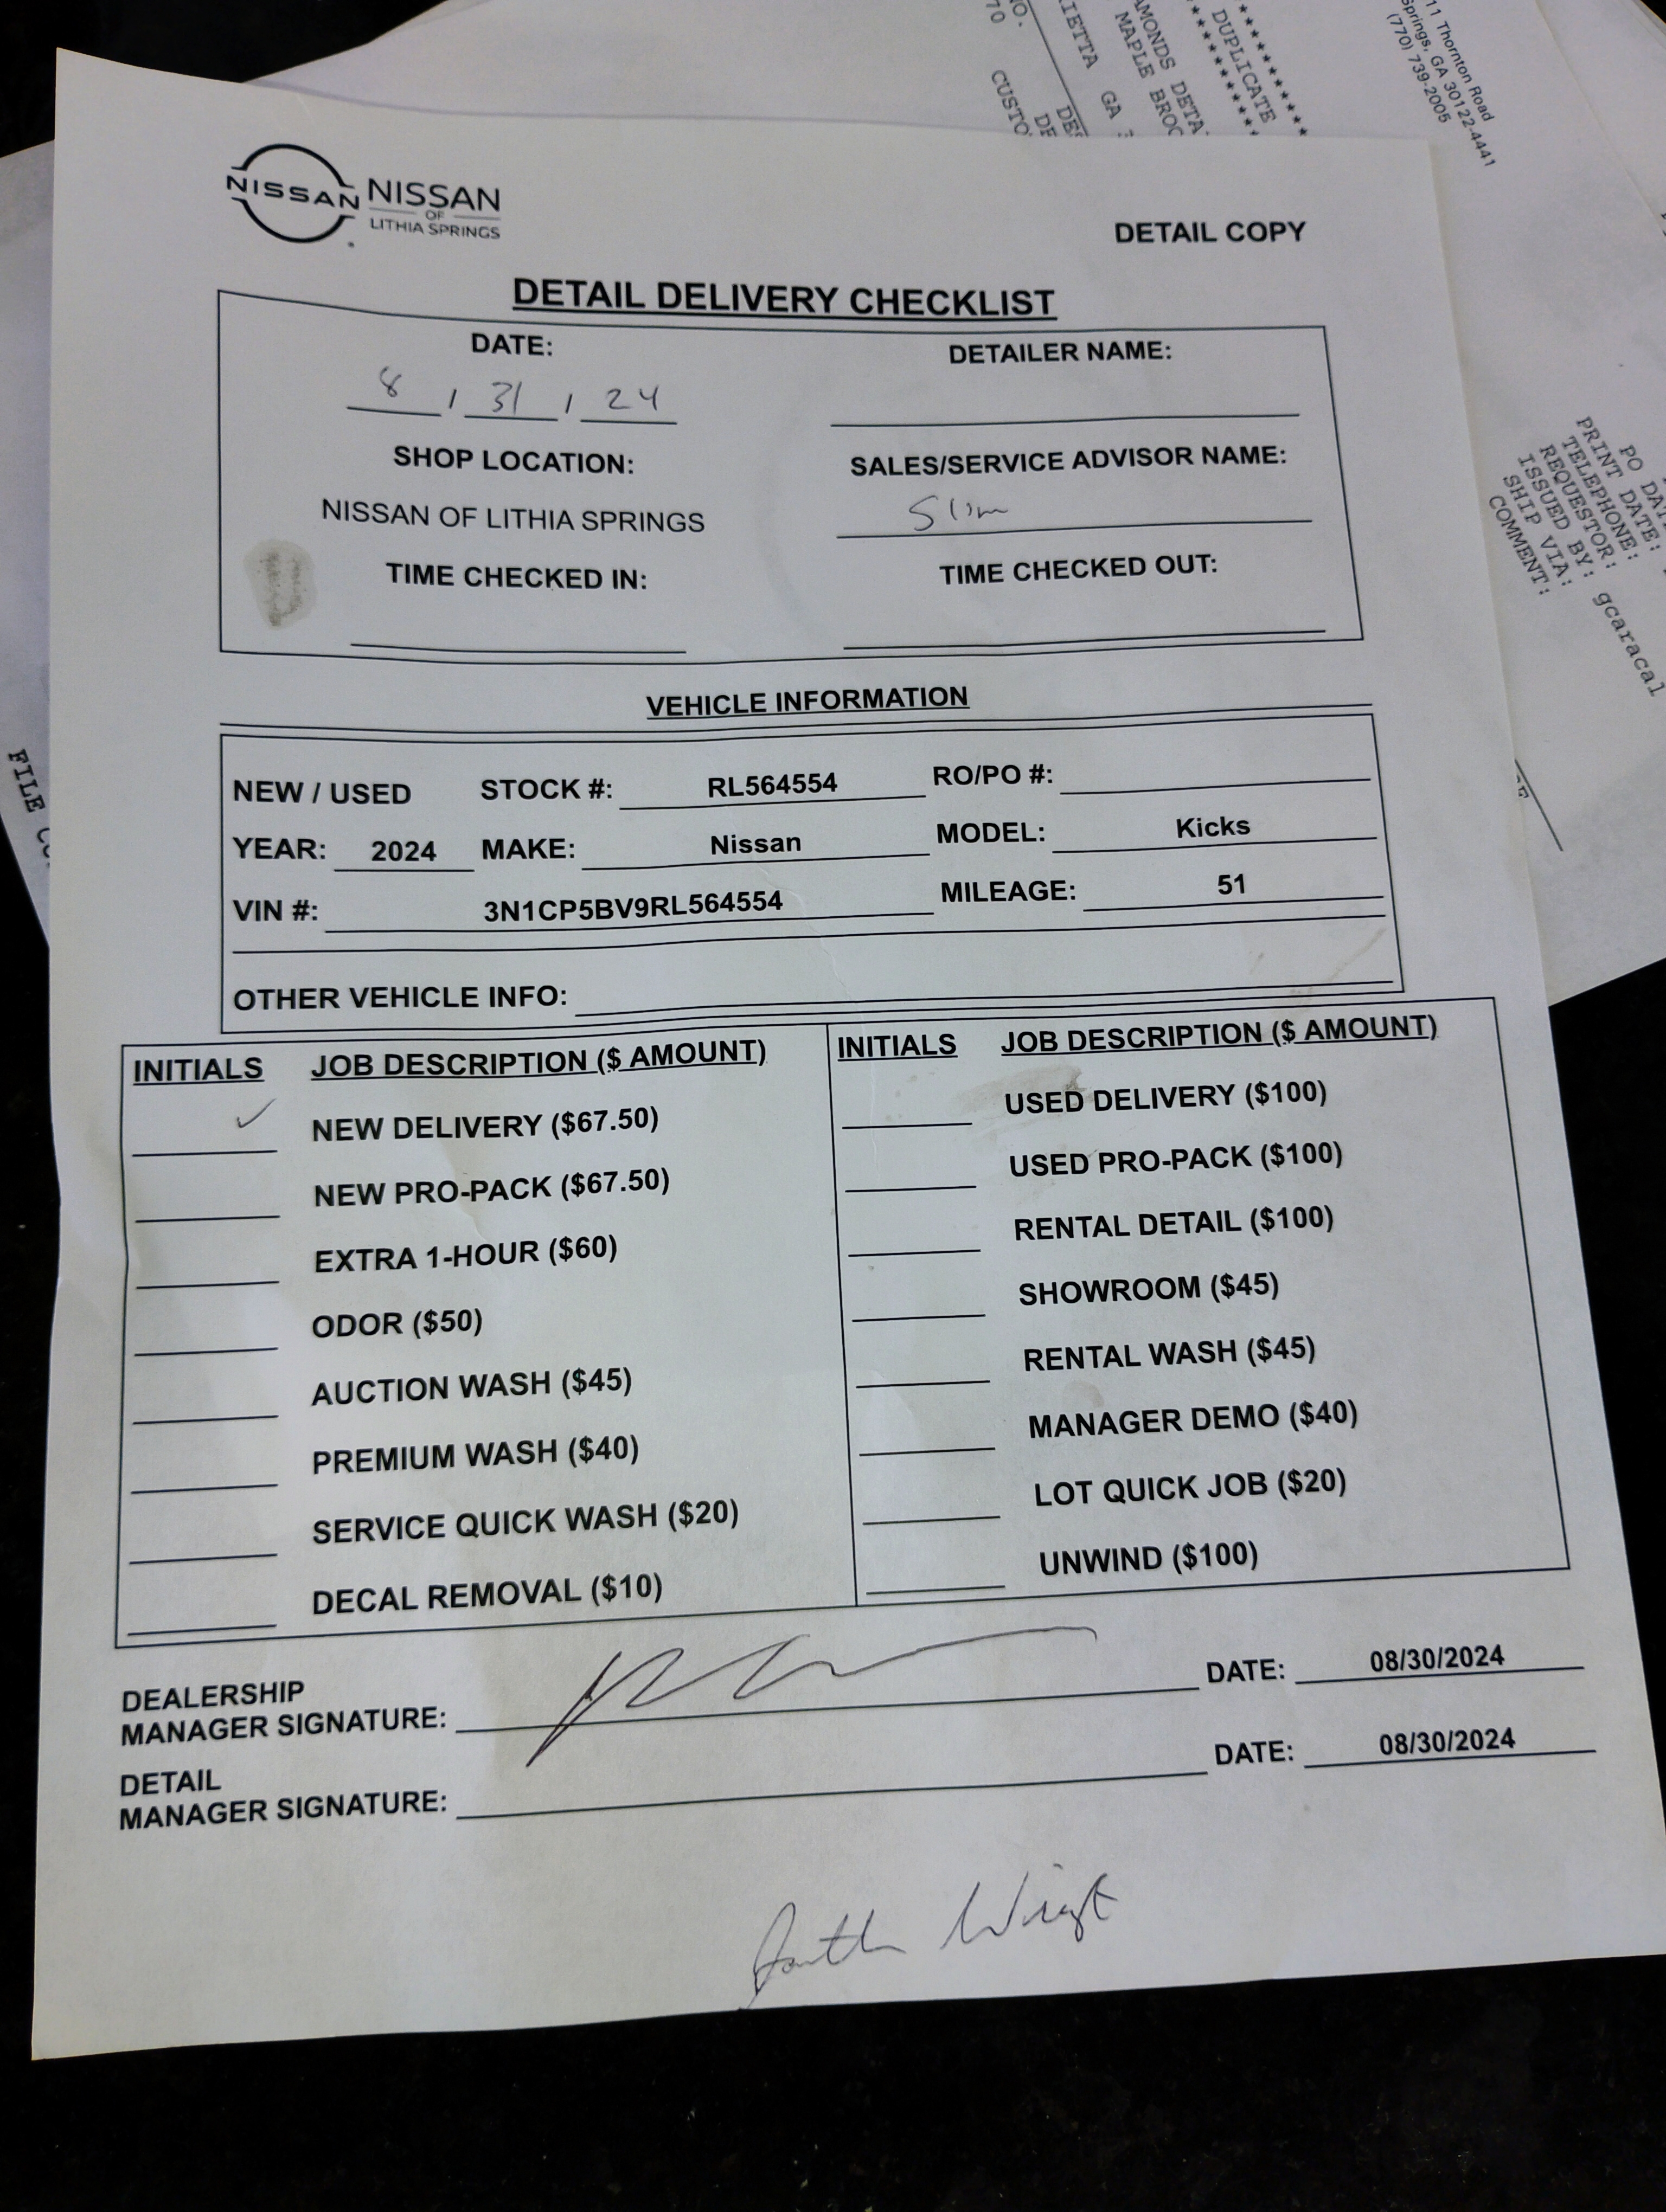 NO.
70 CUSTO
RIETTA GA
DE
DUPLICATE
MAPLE
11 Thornton Road
Springs, GA 30122-4441
(770) 739-2005
NISSAN NISSAN
OF
LITHIA SPRINGS
DETAIL COPY
DETAIL DELIVERY CHECKLIST
DATE:
8 / 31 / 24
DETAILER NAME:
SHOP LOCATION:
NISSAN OF LITHIA SPRINGS
SALES/SERVICE ADVISOR NAME:
Slim
TIME CHECKED IN:
TIME CHECKED OUT:
VEHICLE INFORMATION
NEW / USED STOCK #: RL564554 RO/PO #:
YEAR: 2024 MAKE: Nissan MODEL: Kicks
VIN #: 3N1CP5BV9RL564554 MILEAGE: 51
OTHER VEHICLE INFO:
INITIALS JOB DESCRIPTION ($ AMOUNT)
✓ NEW DELIVERY ($67.50)
NEW PRO-PACK ($67.50)
EXTRA 1-HOUR ($60)
ODOR ($50)
AUCTION WASH ($45)
PREMIUM WASH ($40)
SERVICE QUICK WASH ($20)
DECAL REMOVAL ($10)
INITIALS JOB DESCRIPTION ($ AMOUNT)
USED DELIVERY ($100)
USED PRO-PACK ($100)
RENTAL DETAIL ($100)
SHOWROOM ($45)
RENTAL WASH ($45)
MANAGER DEMO ($40)
LOT QUICK JOB ($20)
UNWIND ($100)
DEALERSHIP
MANAGER SIGNATURE: DATE: 08/30/2024
DETAIL
MANAGER SIGNATURE: DATE: 08/30/2024
PO DAT
PRINT DATE:
TELEPHONE:
REQUESTOR:
ISSUED BY: gcaracal
SHIP VIA:
COMMENT:
FILE